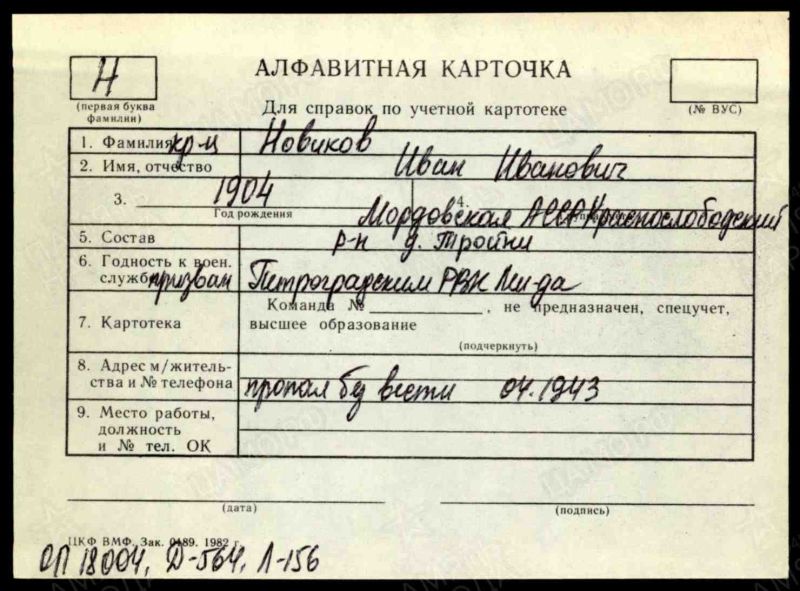 Н
АЛФАВИТНАЯ КАРТОЧКА
(первая буква фамилии)
Для справок по учетной картотеке
(№ ВУС)
1. Фамилия кр-ц Новиков
2. Имя, отчество Иван Иванович
3. 1904 4.
Год рождения
Мордовская АССР Краснослободский
5. Состав р-н д. Тройни
6. Годность к воен.
службе призван Петроградским РВК Лен-да
Команда № , не предназначен, спецучет,
7. Картотека высшее образование
(подчеркнуть)
8. Адрес м/житель-
ства и № телефона пропал без вести 04.1943
9. Место работы,
должность
и № тел. ОК
(дата) (подпись)
ЦКФ ВМФ. Зак. 0489. 1982 г.
ОП 18004, Д-564, Л-156